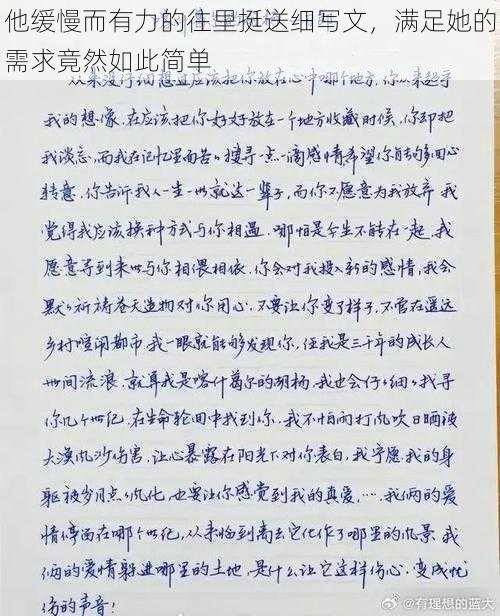 他缓慢而有力的往里挺送细写文，满足她的
需求竟然如此简单
从来没仔细想过应该把你放在心中哪个地方，你从来超乎
我的想像，在应该把你好好放在一个地方收藏时候，你却把
我淡忘，而我在记忆里面苦苦搜寻一点一滴感情希望你能够回心
转意，你告诉我人一生一世就这一辈子，而你不愿意为我放弃，我
觉得我应该换种方式与你相遇，哪怕是今生不能在一起，我
愿意等到来世与你相偎相依，你会对我投入新的感情，我会
默默祈祷苍天造物对你用心，不要让你变了样子，不管在遥远
乡村喧闹都市我一眼就能够发现你，任我是三千年的成长人
世间流浪，就算我是喀什葛尔的胡杨，我也会仔仔细细找寻
你几个世纪，在生命轮回中找到你，我不怕雨打风吹日晒被
大漠风沙伤害，让心暴露在阳光下对你表白，我宁愿我的身
躯被岁月点点风化，也要让你感觉到我的真爱，……我俩的爱
情停留在哪个世纪，从来临到离去它化作了哪里的风景，我
俩的爱情躲进哪里的土地，是什么让它这样伤心，变成忧
伤的声音！
@有理想的蓝天